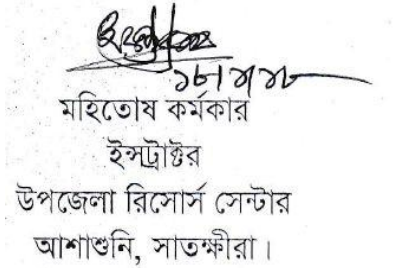 মহিতোষ কর্মকার
ইন্সট্রাক্টর
উপজেলা রিসোর্স সেন্টার
আশাশুনি, সাতক্ষীরা।